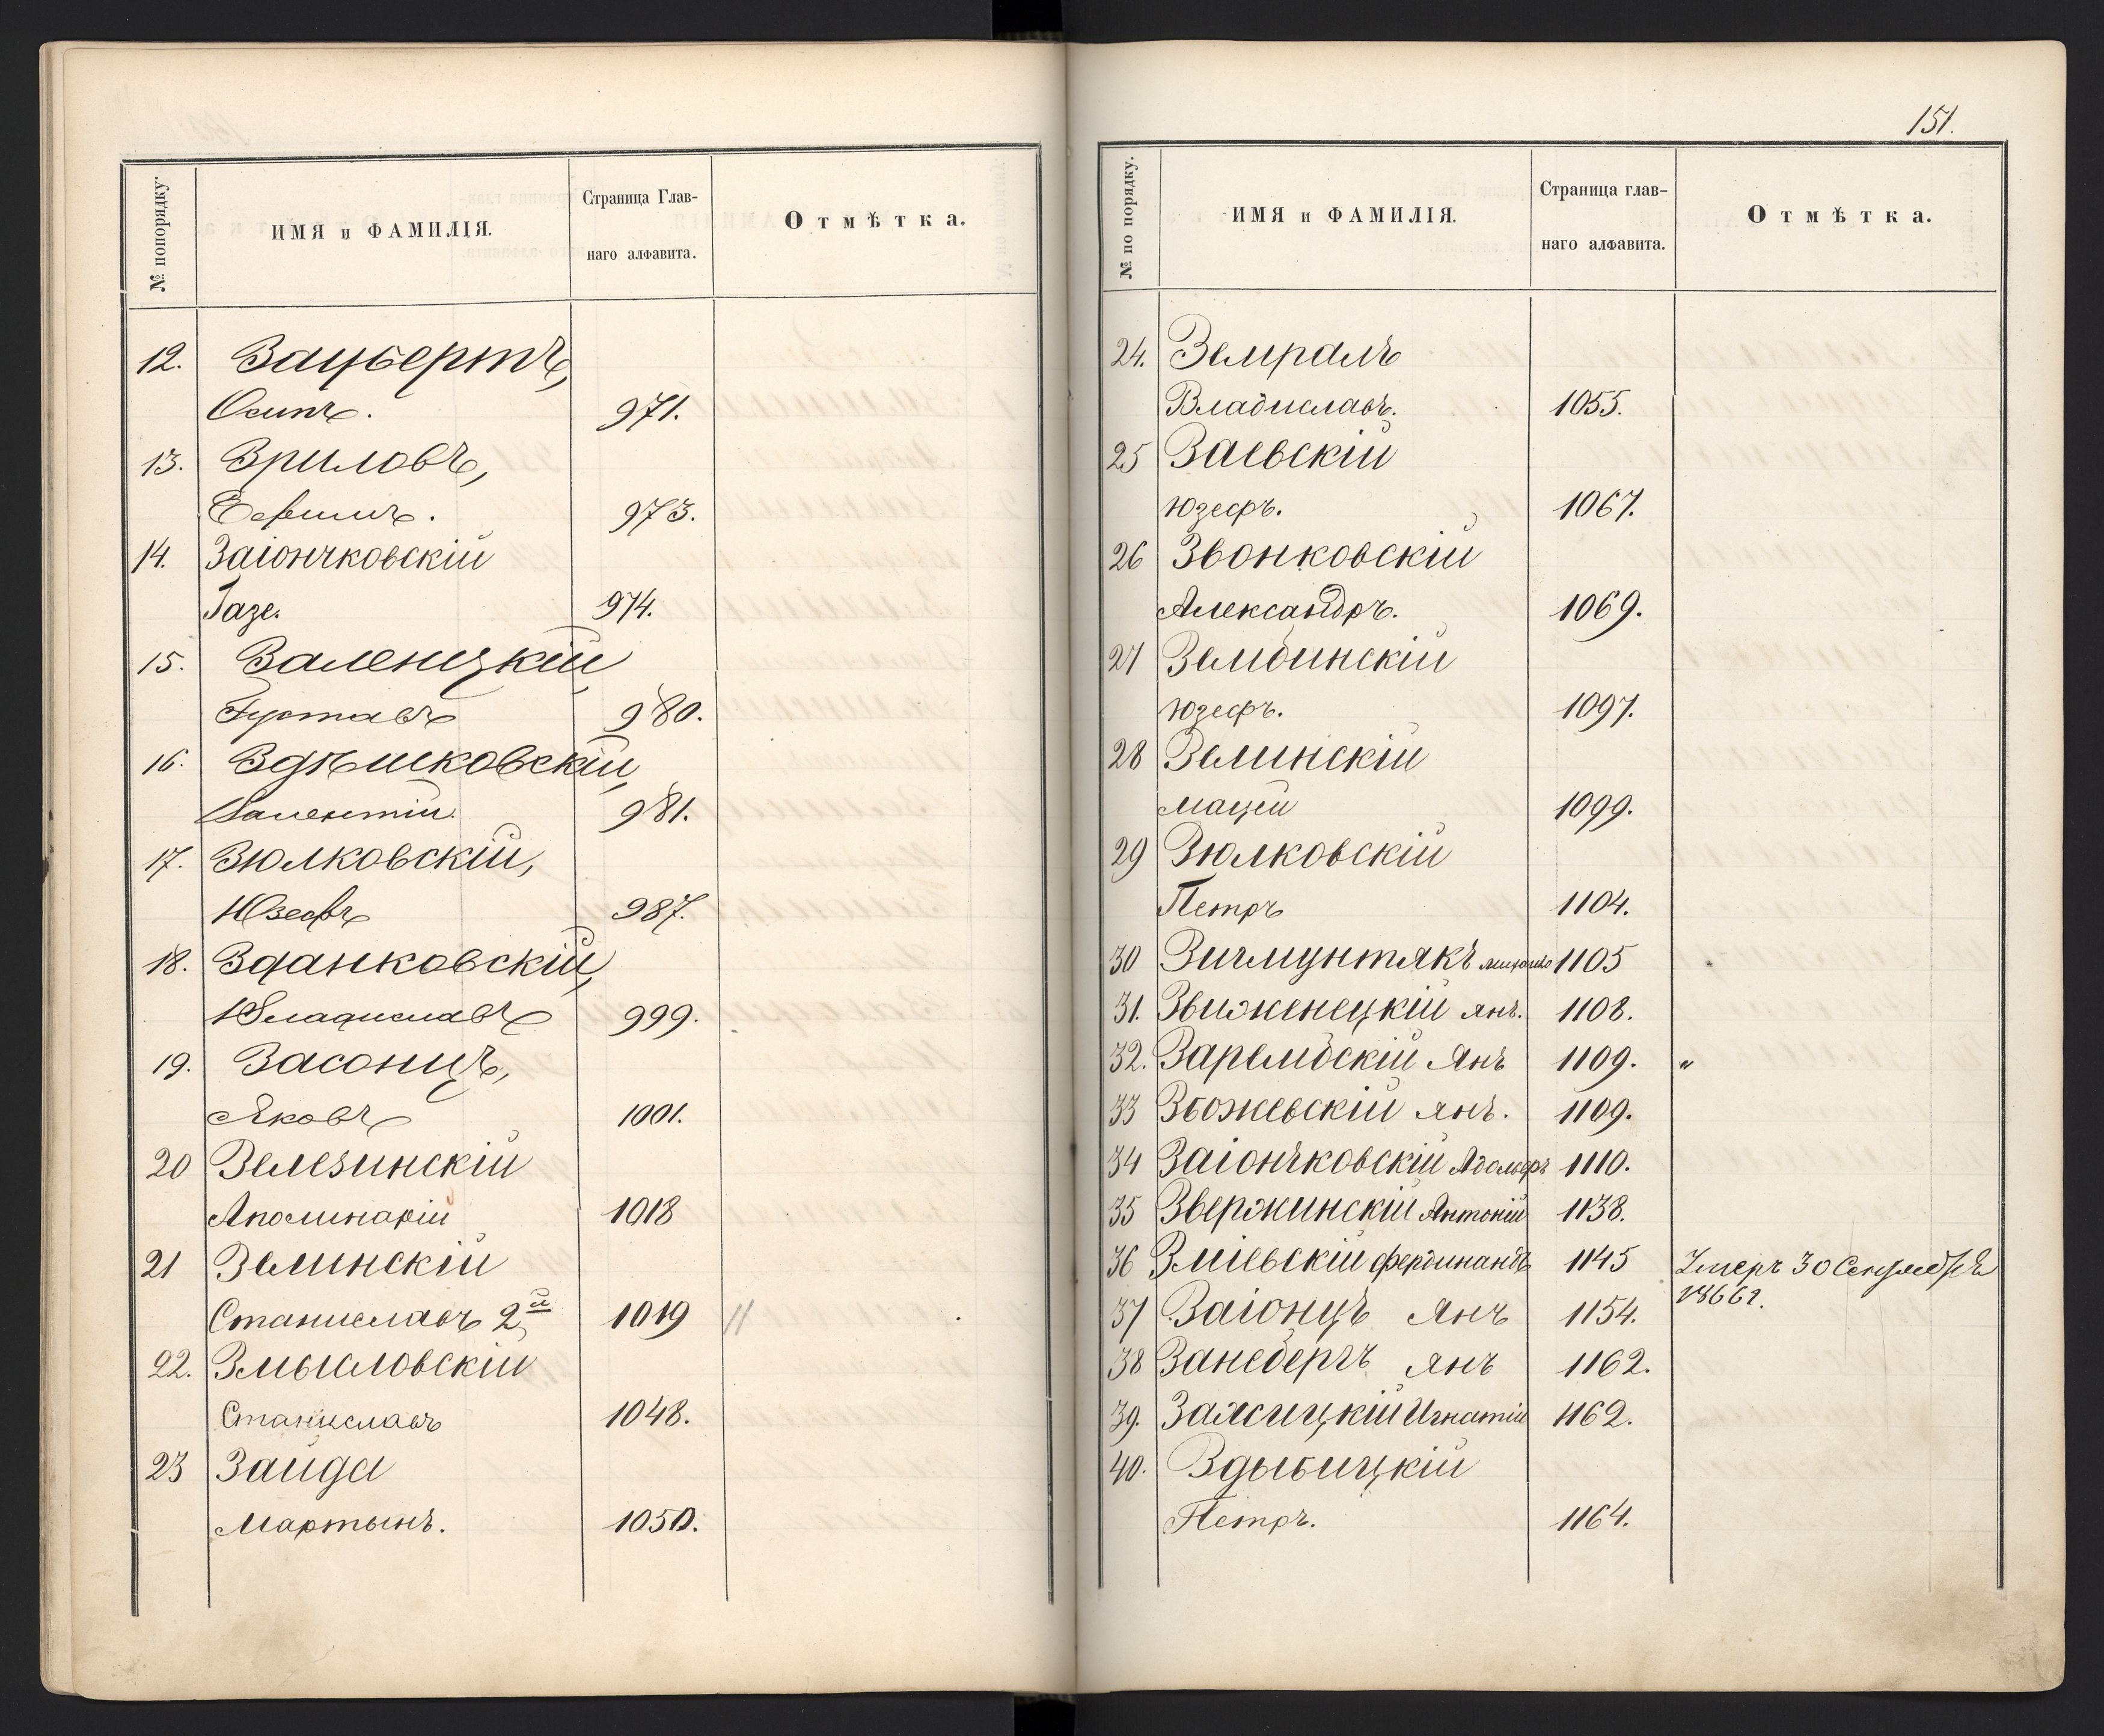 № попорядку.
ИМЯ и ФАМИЛІЯ.
Страница Глав-
наго алфавита.
Отмѣтка.
12. Зацбертъ,
Осипъ. 971.
13. Зриловъ,
973.
14. Заіончковскій
Газе. 974.
15. Заленцкій
Густавъ 980.
16. Здѣшковскій,
Валентій. 981.
17. Зюлковскій,
Юзефъ 987.
18. Зданковскій,
Владиславъ 999.
19. Засонцъ,
Яковъ 1001.
20 Зелезинскій
Аполинарій 1018
21 Зелинскій
Станиславъ 2й 1019 //
22. Змысловскій
Станиславъ 1048.
23 Зайда
Мартынъ. 1050.
151.
№ по порядку.
ИМЯ и ФАМИЛІЯ.
Страница глав-
наго алфавита.
Отмѣтка.
24. Земралъ
Владиславъ. 1055.
25 Заевскій
Юзефъ. 1067.
26 Звонковскій
Александръ. 1069.
27 Зембинскій
Юзефъ. 1097.
28 Зелинскій
Мацей 1099.
29 Зюлковскій
Петръ 1104.
30 Зигмунтякъ 1105
31. Звиженецкій Янъ. 1108.
32. Зарембскій Янъ 1109. „
33 Збожевскій Янъ. 1109.
34 Заіончковскій Адольфъ 1110.
35 Звержинскій Антоній 1138.
36 Зміевскій Фердинандъ 1145 Умеръ 30 Сентября
1866 г.
37 Заіонцъ Янъ 1154.
38 Занебергъ Янъ 1162.
39. Заясицкій Игнатій 1162.
40. Здыбицкій
Петръ. 1164.